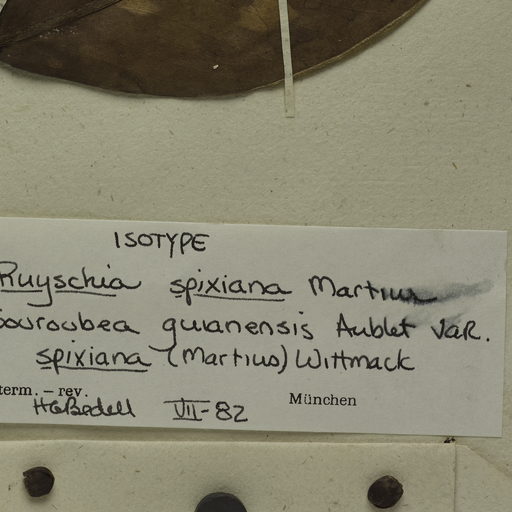 ISOTYPE
Ruyschia spixiana Martius
Souroubea guianensis Aublet var.
spixiana (Martius) Wittmack
term. – rev.
HGBedell VII-82
München